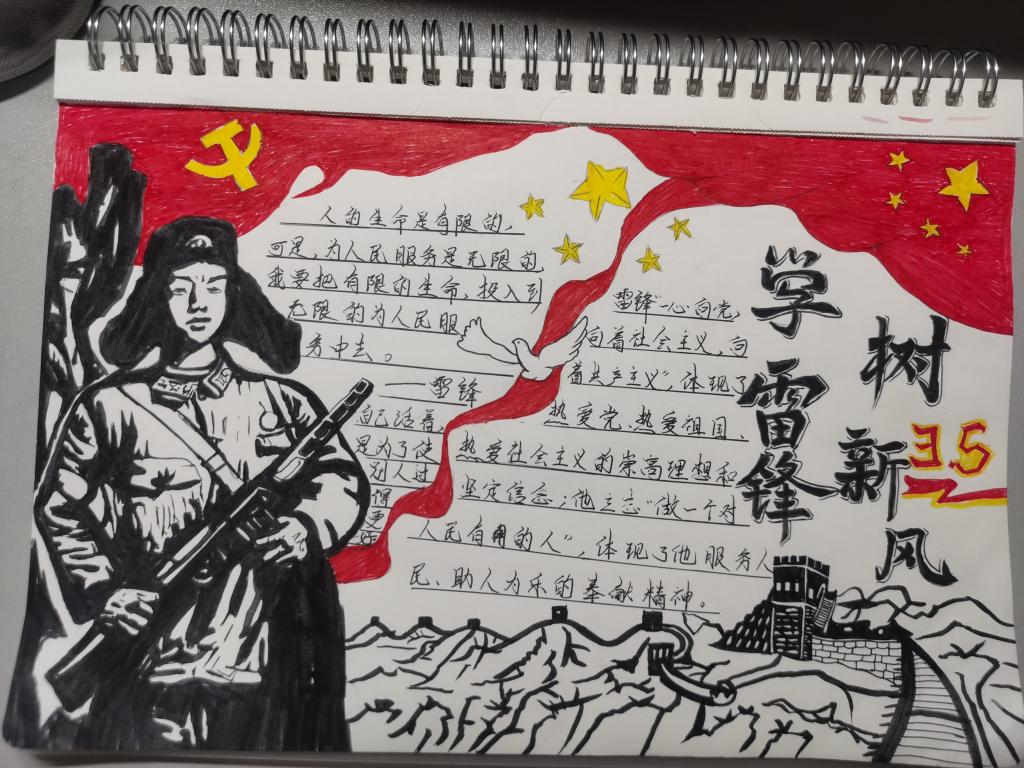 人的生命是有限的,
可是,为人民服务是无限的,
我要把有限的生命,投入到
无限的为人民服
务中去。
——雷锋
自己活着,
是为了使
别人过
得
更
好
雷锋“一心向党,
向着社会主义,向
着共产主义”,体现了
热爱党、热爱祖国、
热爱社会主义的崇高理想和
坚定信念;他立志“做一个对
人民有用的人”,体现了他服务人
民、助人为乐的奉献精神。
学雷锋
树新风
3.5